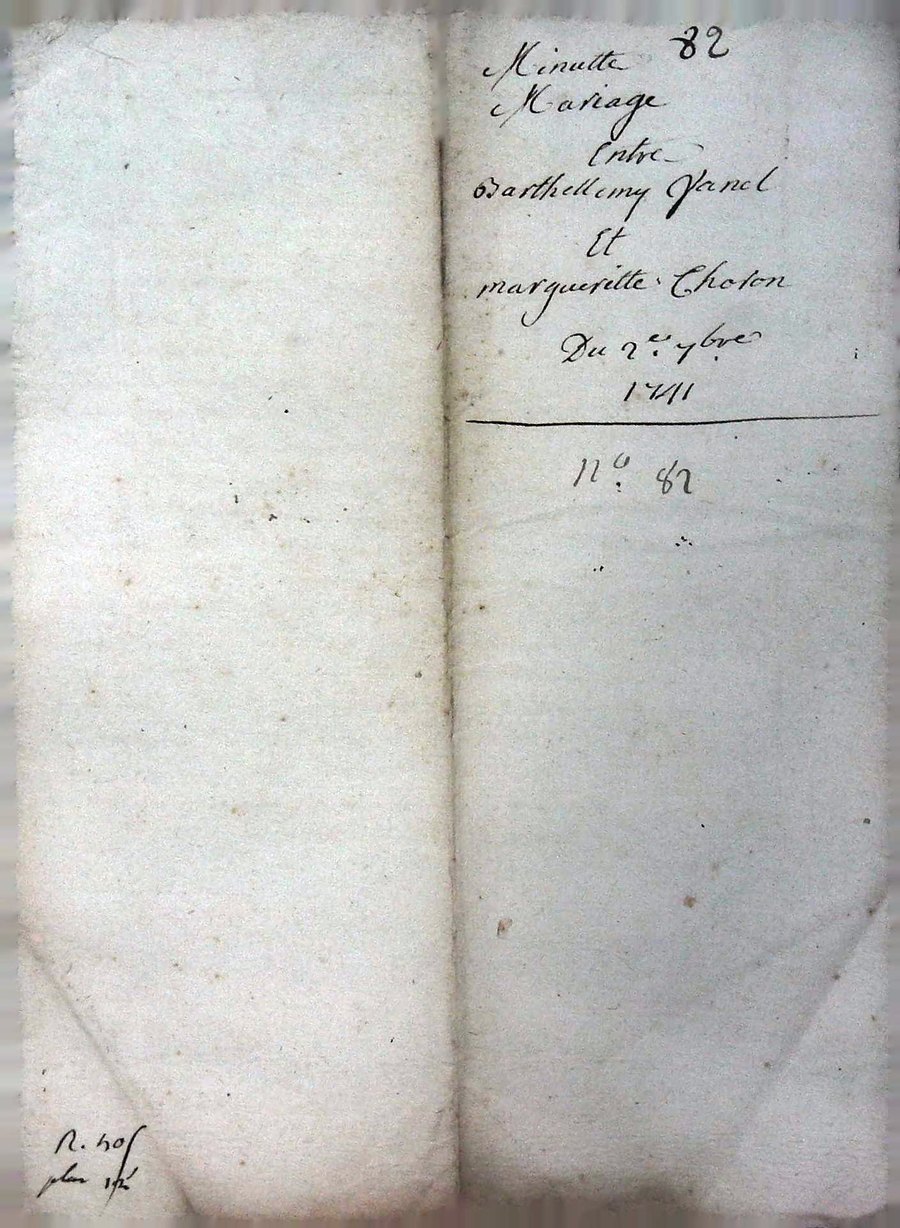 82
Minutte
Mariage
Entre
Barthellemy Vanel
Et
margueritte Choron
Du 2e 7bre
1741
No 82
R. 40s
plus